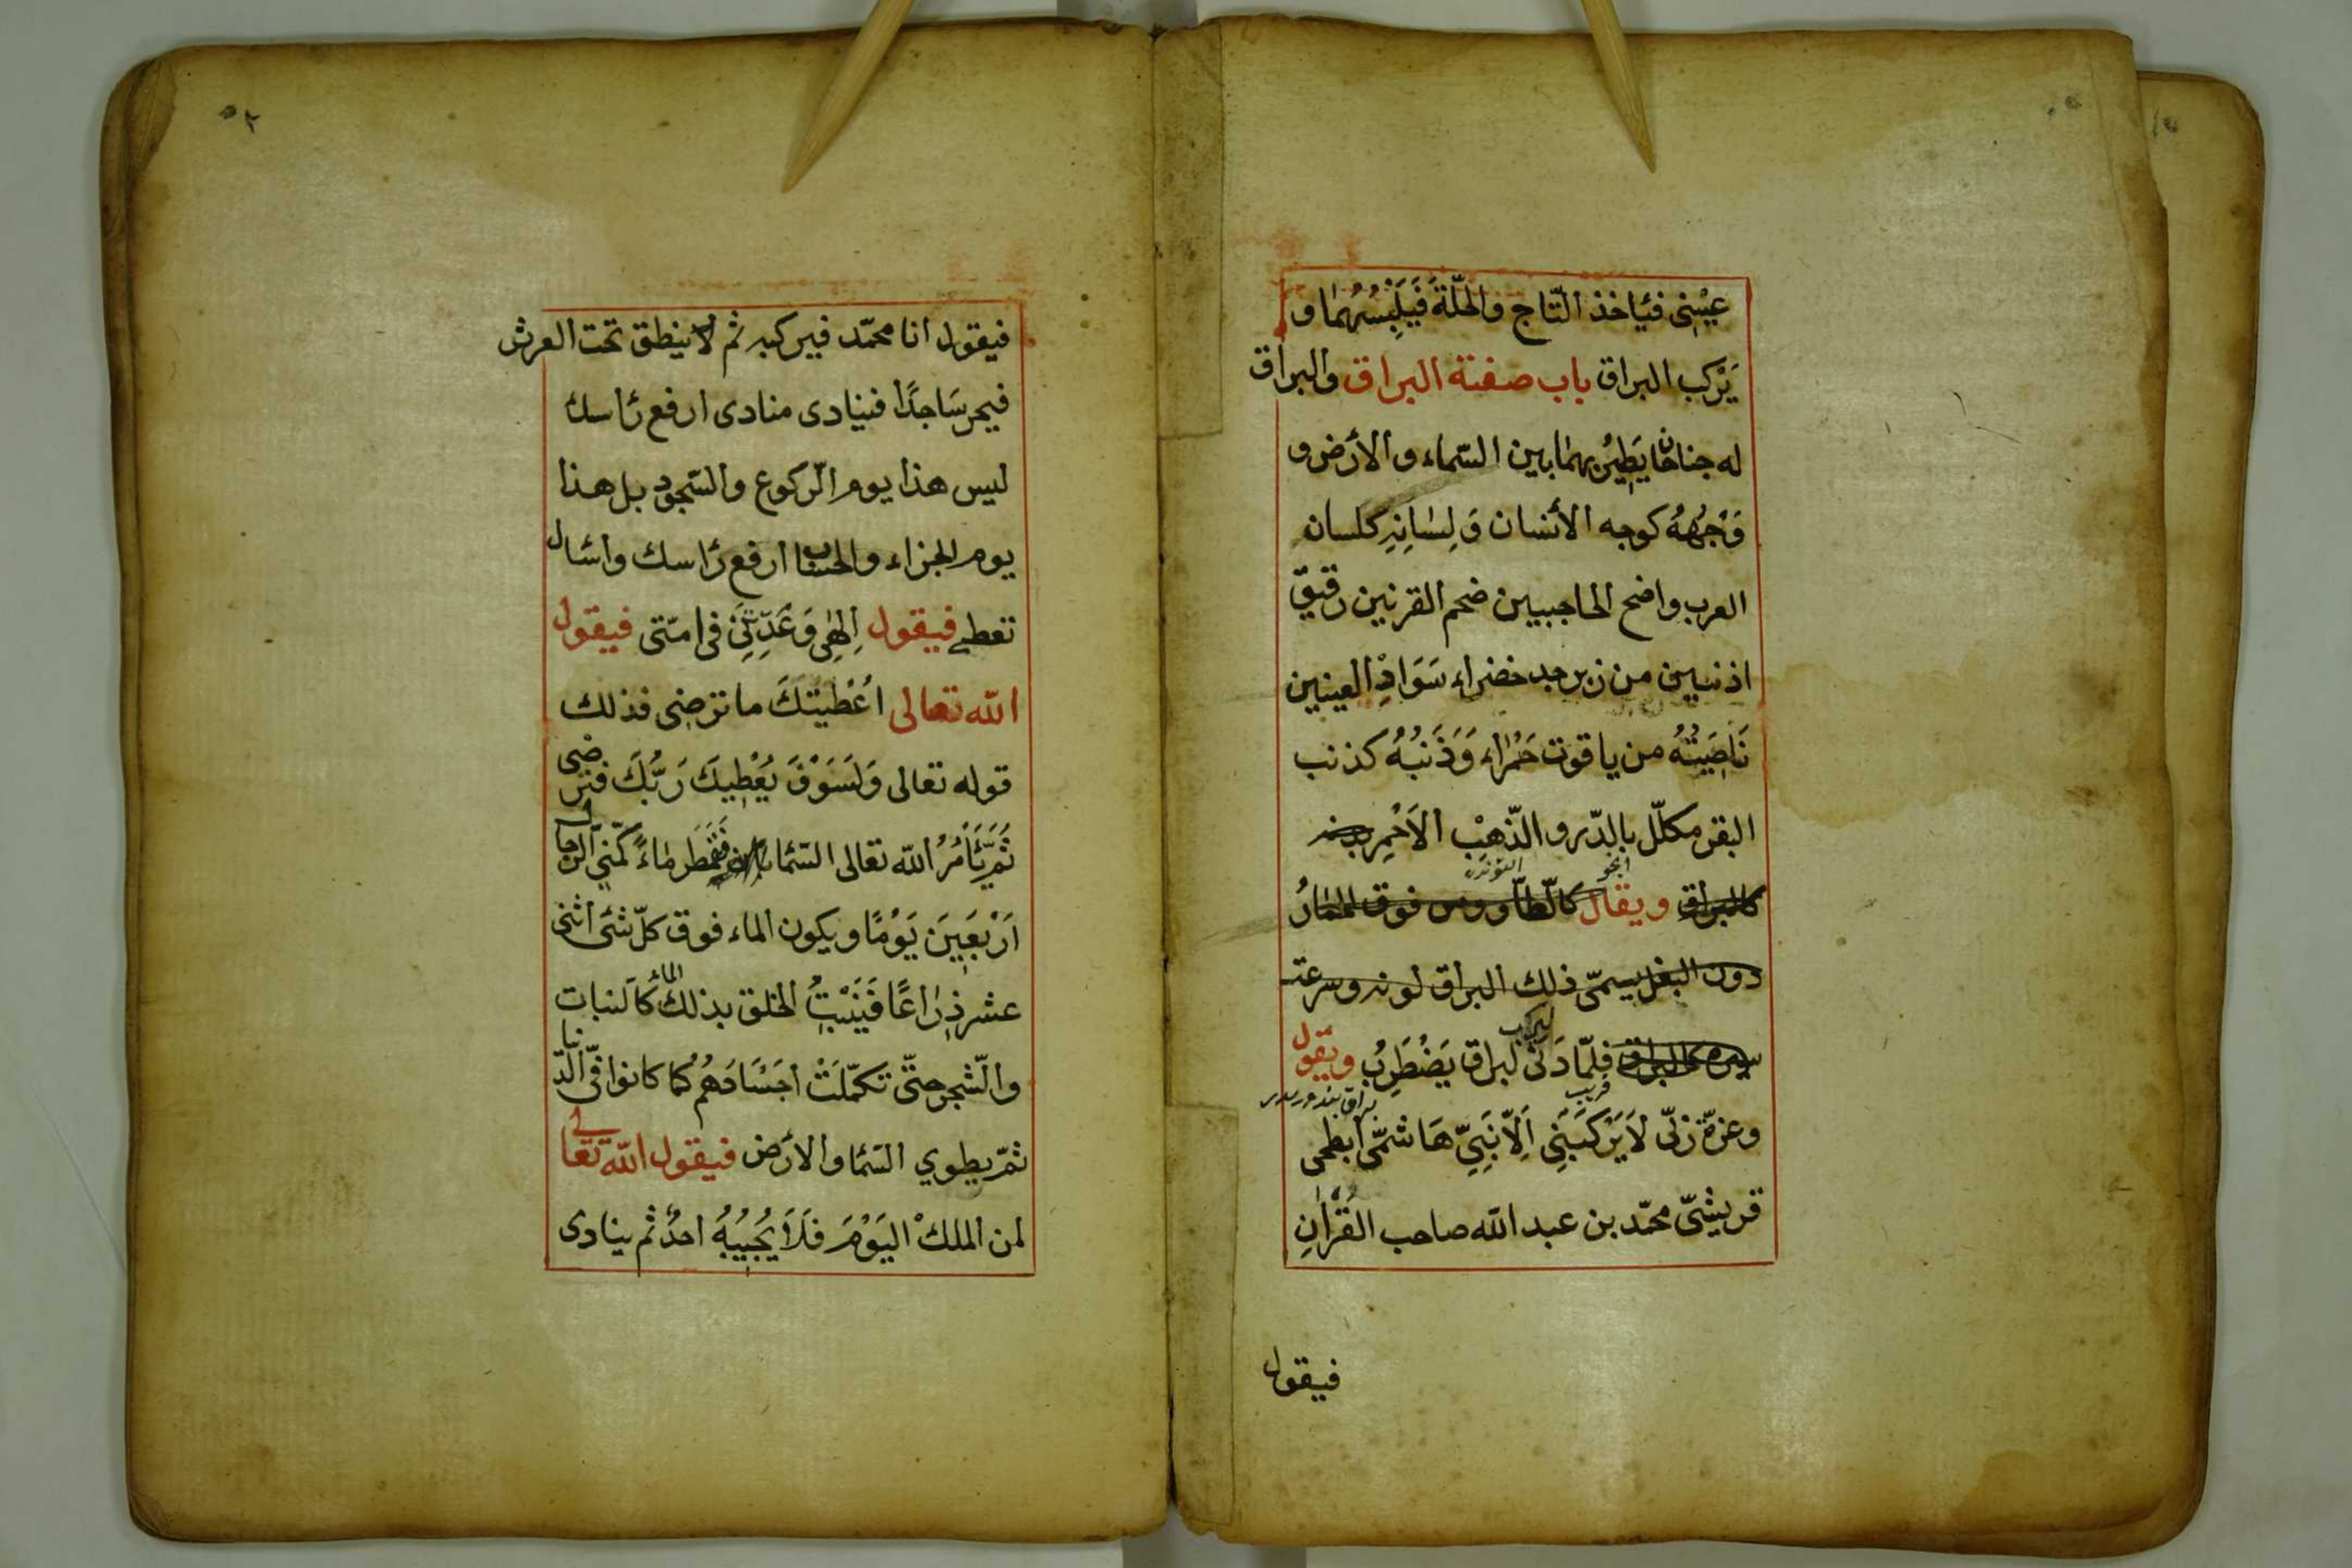 عيسى فياخذ التّاج والحلّة فَيَلْبِسُهُمَا و
يَرْكب البراق باب صفة البراق والبراق
له جناحان يَطِيرُ بهما بين السّماء والأرض و
وَجْهُهُ كوجه الأنسان وَلِسَانِهِ كلسان
العرب واضح الحاجبيين ضخم القرنين رقيق
اذنيين من زبرجد خضراء سَوَادِ العينين
نَاصِيَتُهُ من ياقوت حَمْرَاء وَذَنَبُهُ كذنب
البقر مكلّل بالدّر والذّهبْ الاَحْمِر
كالبراق ويقال كالطّاووس فوق الحمَارُ
دون البغل يسمّى ذلك البراق لونه وسرعته
سيره كالبراق فلمّا دَنىٰ ليركب البراق يَضْطَرِبُ ويقول
قريب
وعزّة ربّى لاَيَرْكَبَنِى اَلاّ نَبِىّ هَاشمّى ابطحى
قريشىّ محمّد بن عبد الله صاحب القُرْاٰنِ
فيقول
٢
فيقول انا محمّد فيركبه ثم لاينطق تحت العرش
فيخر سَاجدًا فينادى منادى ارفع رأسك
ليس هذا يوم الرّكوع والسّجود بل هذا
يوم الجزاء والحساب ارفع رأسك واسأل
تعطى فيقول اِلهِى وَعَدّتَنِى فى امّتى فيقول
الله تعالى اُعْطَيْتكَ ما ترضى فذلك
قوله تعالى وَلَسَوْفَ يُعْطِيكَ رَبُّكَ فترضى
ثُمَّ يَأمُرُ الله تعالى السّما فَتمطَر مَاءً كمَنِىّ الرجال
اَرْبَعِينَ يَوْمًا ويكون الماء فوق كلّ شئ اثنى
عشر ذِرَاعًا فَيَنْبِتُ الخلق بذلك الماء كالنبات
والشّجر حتّى تكمّلَتْ اَجَسَادَهُمْ كما كانوا فى الدّنيا
ثمّ يطوي السّما والارض فيقول الله تعالى
لمن الملكْ اليَوْمَ فَلاَ يُجِيبُهُ احدٌ ثم ينادى